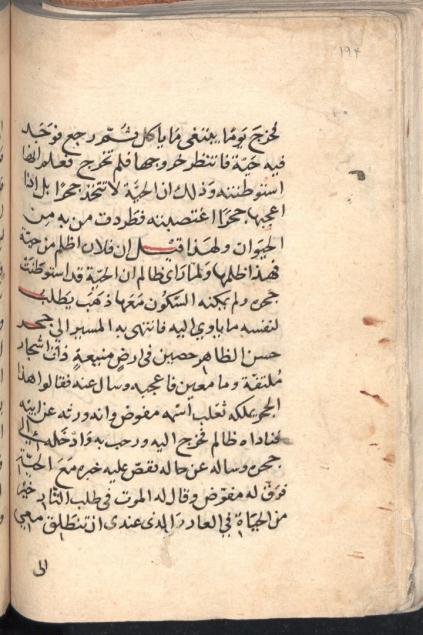 ١٩٤
فخرج يوما يبتغى ما ياكل ثم رجع فوجد
فيه حية فانتظر خروجها فلم تخرج فعلم انها
استوطنته وذلك ان الحية لا تتخذ جحرا بل اذا
اعجبها جحرا اغتصبته فطردت من به من
الحيوان ولهذا قيل ان فلان اظلم من حية
فهذا ظلمها ولما راى ظالم ان الحية قد استوطنت
جحره ولم يمكنه السكون معها ذهب يطلب
لنفسه ما ياوى اليه فانتهى به المسير الى جحر
حسن الظاهر حصين فى ارض منيعة ذات اشجار
ملتفة وما معين فاعجبه وسال عنه فقالوا هذا
الجحر يملكه ثعلب اسمه مفوض وانه ورثه عن ابيه
فناداه ظالم فخرج اليه ورحب به وادخله الى
جحره وساله عن حاله فقص عليه خبره مع الحية
فرق له مفوض وقال له الموت فى طلب الثار خير
من الحياة فى العار والذى عندى ان تنطلق معى
الى